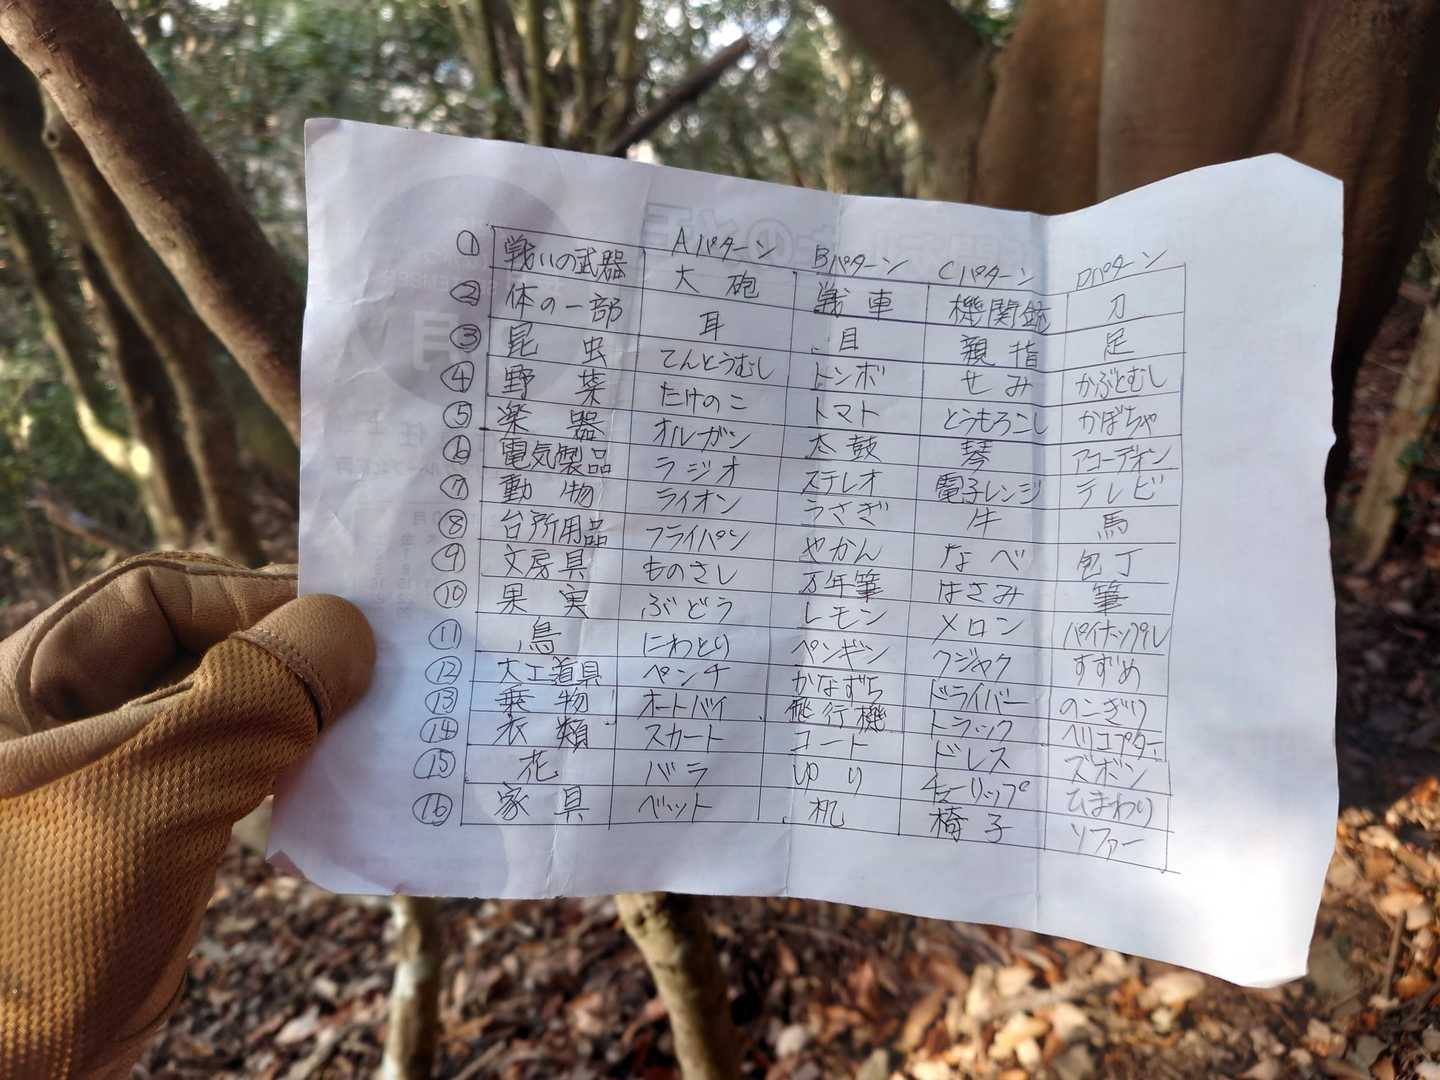 Aパターン Bパターン Cパターン Dパターン
① 戦いの武器 大砲 戦車 機関銃 刀
② 体の一部 耳 目 親指 足
③ 昆虫 てんとうむし トンボ せみ かぶとむし
④ 野菜 たけのこ トマト とうもろこし かぼちゃ
⑤ 楽器 オルガン 太鼓 琴 アコーデオン
⑥ 電気製品 ラジオ ステレオ 電子レンジ テレビ
⑦ 動物 ライオン うさぎ 牛 馬
⑧ 台所用品 フライパン やかん なべ 包丁
⑨ 文房具 ものさし 万年筆 はさみ 筆
⑩ 果実 ぶどう レモン メロン パイナップル
⑪ 鳥 にわとり ペンギン クジャク すずめ
⑫ 大工道具 ペンチ かなずち ドライバー のこぎり
⑬ 乗物 オートバイ 飛行機 トラック ヘリコプター
⑭ 衣類 スカート コート ドレス ズボン
⑮ 花 バラ ゆり チューリップ ひまわり
⑯ 家具 ベット 机 椅子 ソファー